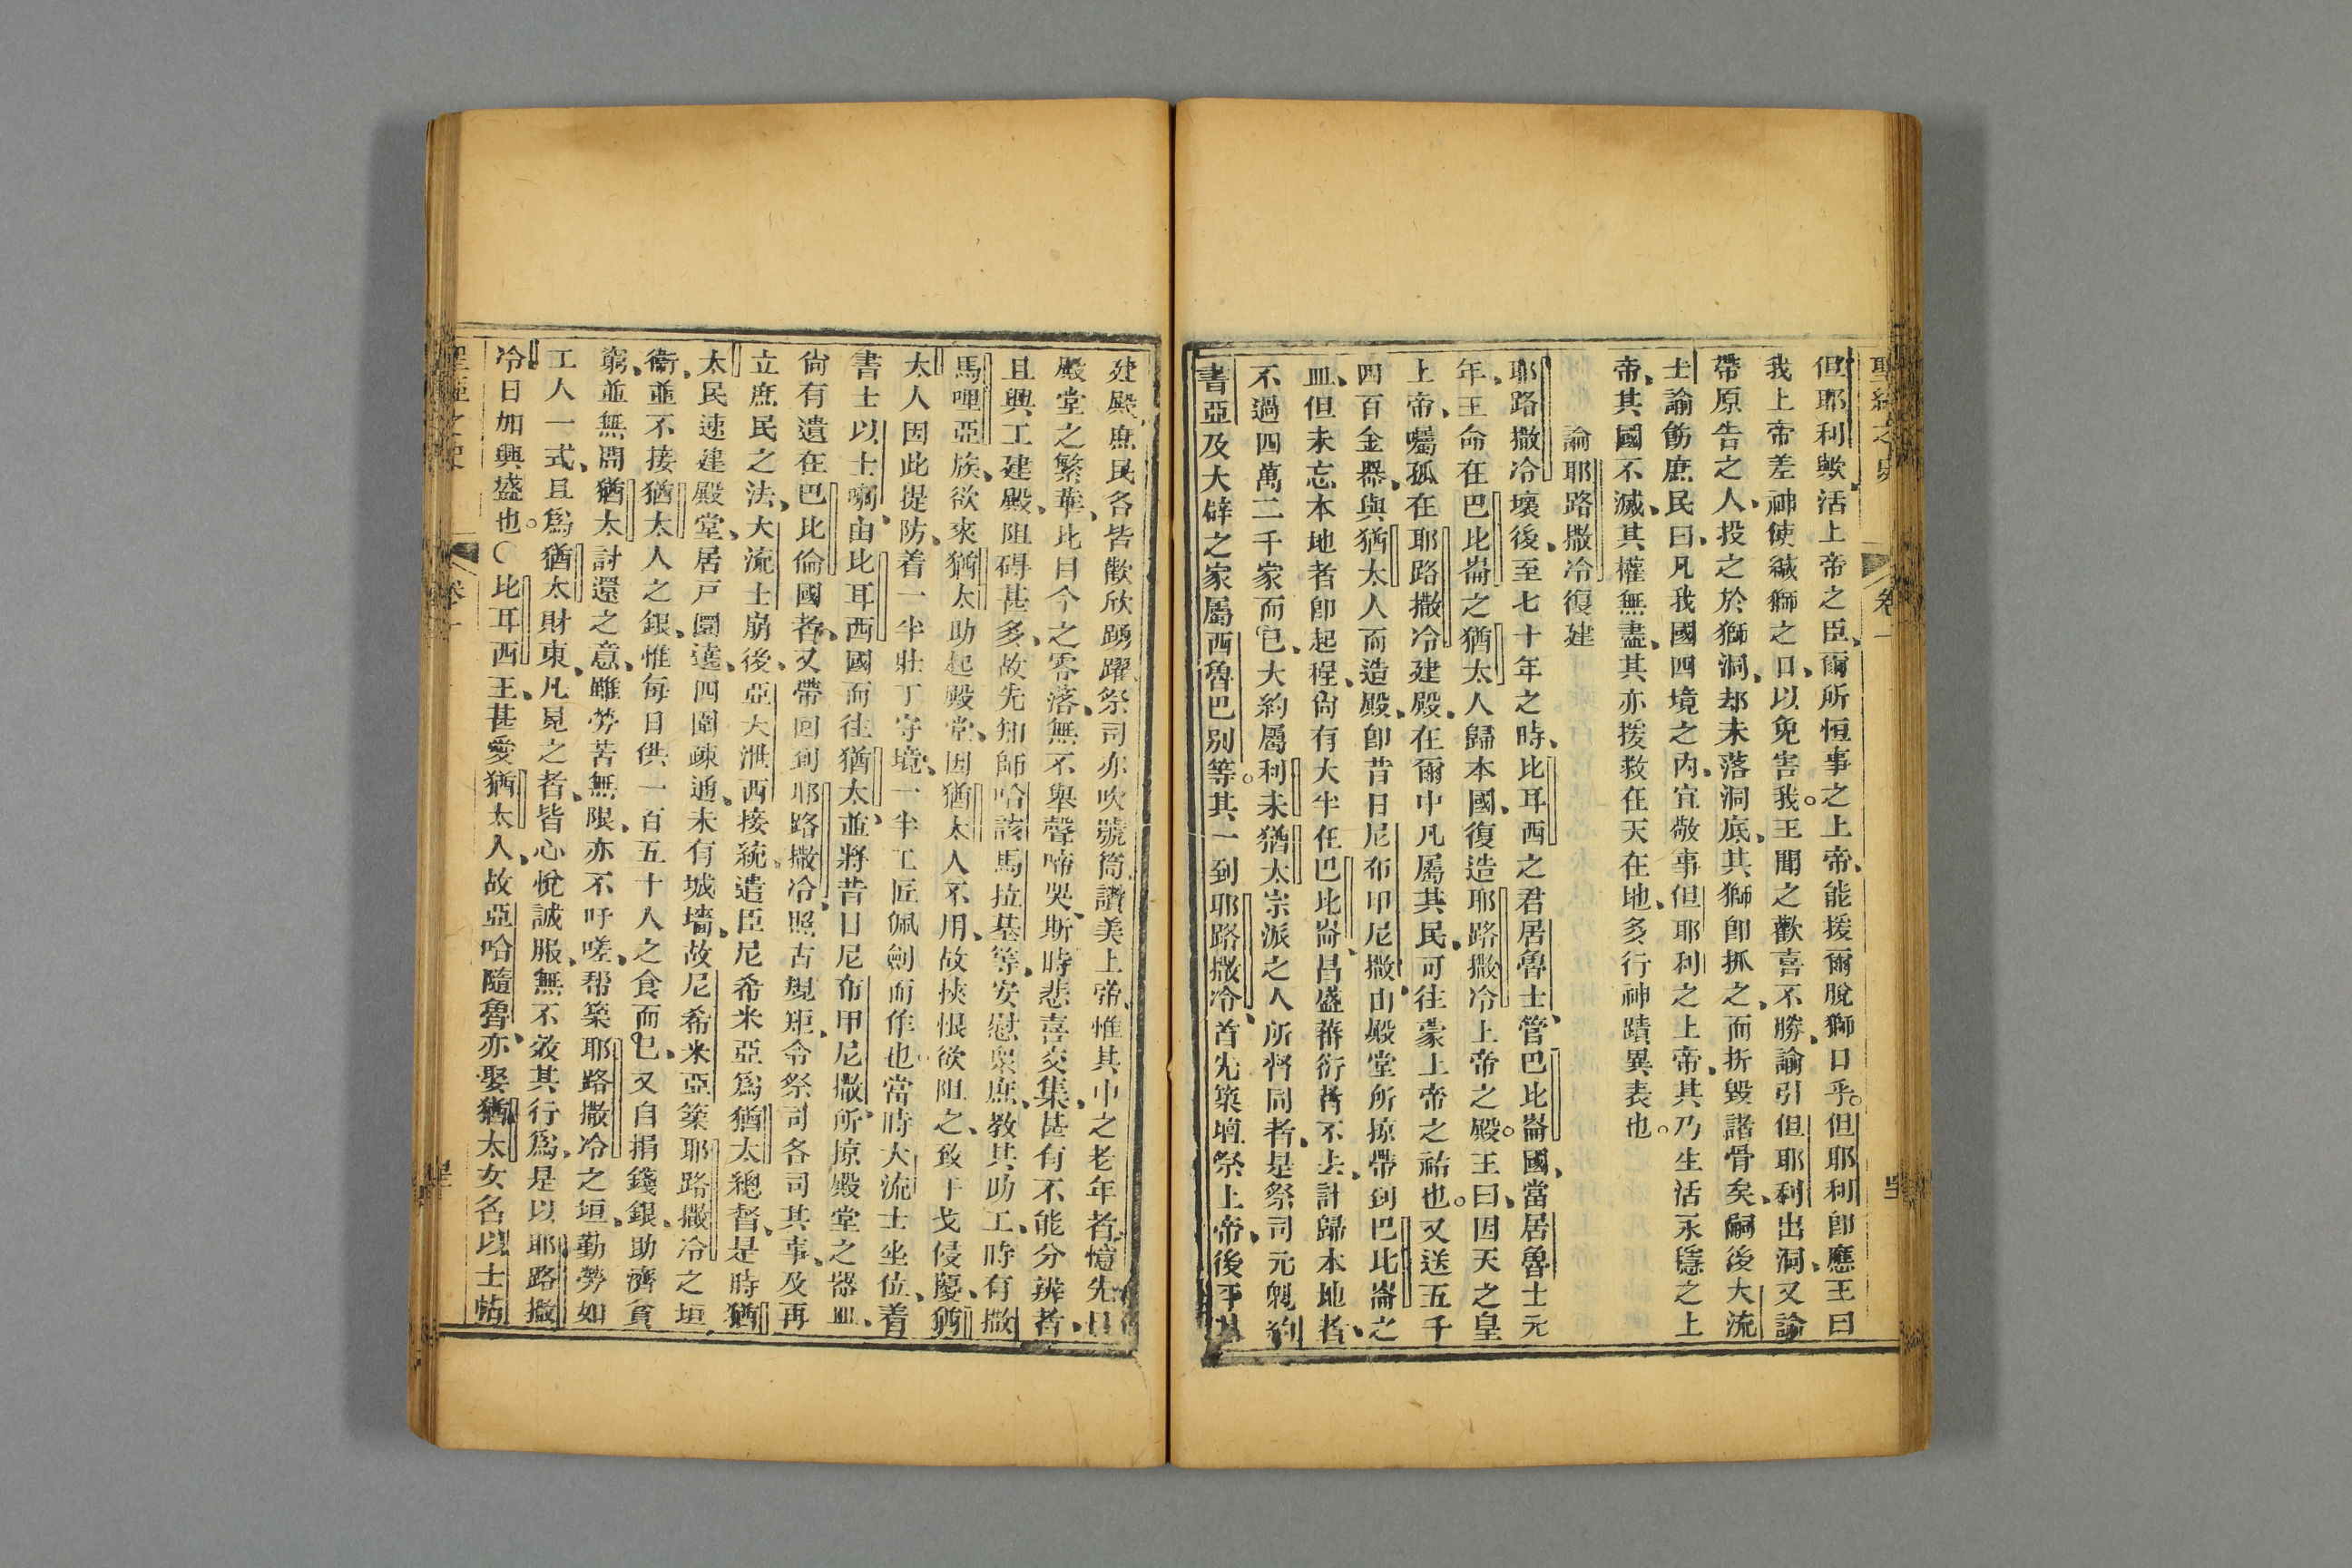 聖經之史 卷一
但耶利歟、活上帝之臣、爾所恒事之上帝、能援爾脫獅口乎。但耶利卽應王曰
我上帝差神使緘獅之口、以免害我。王聞之歡喜不勝、諭引但耶利出洞、又諭
帶原告之人、投之於獅洞、却未落洞底、其獅卽抓之、而折毀諸骨矣、嗣後大流
士諭飭庶民曰、凡我國四境之內、宜敬事但耶利之上帝、其乃生活永穩之上
帝、其國不滅、其權無盡、其亦援救在天在地、多行神蹟異表也。
論耶路撒冷復建
耶路撒冷壞後、至七十年之時、比耳西之君居魯士、管巴比崙國、當居魯士元
年、王命在巴比崙之猶太人歸本國、復造耶路撒冷上帝之殿。王曰、因天之皇
上帝、囑孤在耶路撒冷建殿、在爾中凡屬其民、可往蒙上帝之祐也。又送五千
四百金器、與猶太人而造殿、卽昔日尼布甲尼撒、由殿堂所掠帶到巴比崙之
皿、但未忘本地者卽起程、尙有大半在巴比崙、昌盛蕃衍者不去、計歸本地者、
不過四萬二千家而已、大約屬利未猶太宗派之人所齊同者、是祭司元魁約
書亞及大辟之家屬西魯巴別等。其一到耶路撒冷、首先築壇祭上帝、後平基
建殿、庶民各皆歡欣踴躍、祭司亦吹號筒讚美上帝、惟其中之老年者、憶先日
殿堂之繁華、比目今之零落、無不舉聲啼哭、斯時悲喜交集、甚有不能分辨者、
且興工建殿、阻碍甚多、故先知師哈該馬拉基等、安慰衆庶、教其助工、時有撒
馬哩亞族、欲來猶太助起殿堂、因猶太人不用、故挾恨欲阻之、致干戈侵擾、猶
太人因此提防、着一半壯丁守境、一半工匠佩劍而作也。當時大流士坐位、着
書士以士喇、由比耳西國而往猶太、並將昔日尼布甲尼撒、所掠殿堂之器皿、
尙有遺在巴比倫國者、又帶回到耶路撒冷、照古規矩、令祭司各司其事、及再
立庶民之法、大流士崩後、亞大泄西接統、遣臣尼希米亞爲猶太總督、是時猶
太民速建殿堂、居戸圜遶、四圍疎通、未有城墻、故尼希米亞築耶路撒冷之垣
衛、並不接猶太人之銀、惟每日供一百五十人之食而已、又自捐錢銀、助濟貧
窮、並無問猶太討還之意、雖勞苦無限、亦不吁嗟、帮築耶路撒冷之垣、勤勞如
工人一式、且爲猶太財東、凡見之者、皆心悅誠服、無不效其行爲、是以耶路撒
冷日加興盛也。〇比耳西王、甚愛猶太人、故亞哈隨魯、亦娶猶太女名以士帖
聖經之史 卷一